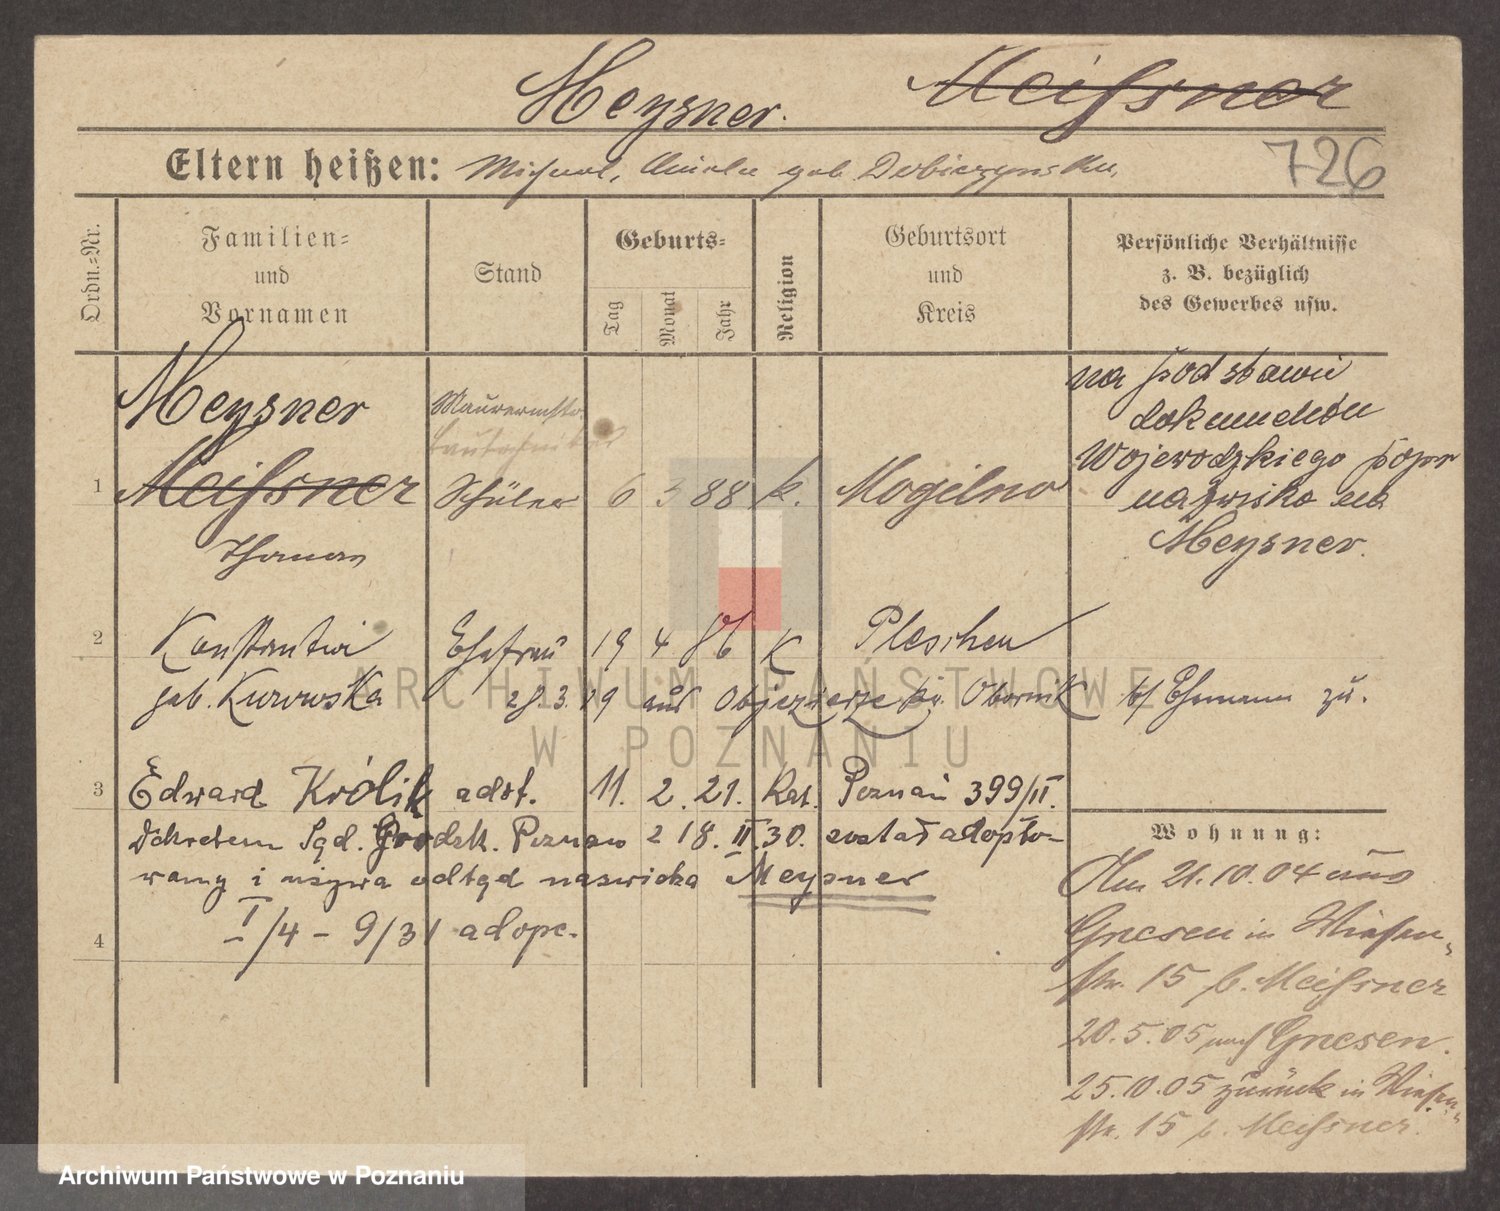 Meysner. Meißner
Eltern heißen: Michael, Amalie geb. Dobiezynska,
726
Ordn.-Nr.
Familien-
und
Vornamen
Stand
Geburts-
Tag
Monat
Jahr
Religion
Geburtsort
und
Kreis
Persönliche Verhältnisse
z. B. bezüglich
des Gewerbes usw.
na podstawie
dokumentów
Wojewodzkiego popr
nazwisko na
Meysner.
Meysner
Maurermstr.
1 Meißner Schüler 6 3 88 k. Mogilno
Thomas
2 Konstantia Ehefrau 19 4 86 K Pleschen
geb. Kurowska 28.3.19 aus Objezierze kr. Obornik b/ Ehemann zu.
3 Edward Królik adot. 11. 2. 21. Kat. Poznań 399/II.
Dekretem Sąd. Grodzk. Poznan z 18. II. 30. został adopto-
wany i używa odtąd nazwiska Meysner
4 I/4 - 9/31 adopc.
Wohnung:
Am 21.10.04 aus
Gnesen in Wiesen-
str. 15 b. Meißner
20.5.05 nach Gnesen.
25.10.05 zurück in Wiesen-
str. 15 b. Meißner.
ARCHIWUM PAŃSTWOWE
W POZNANIU
Archiwum Państwowe w Poznaniu